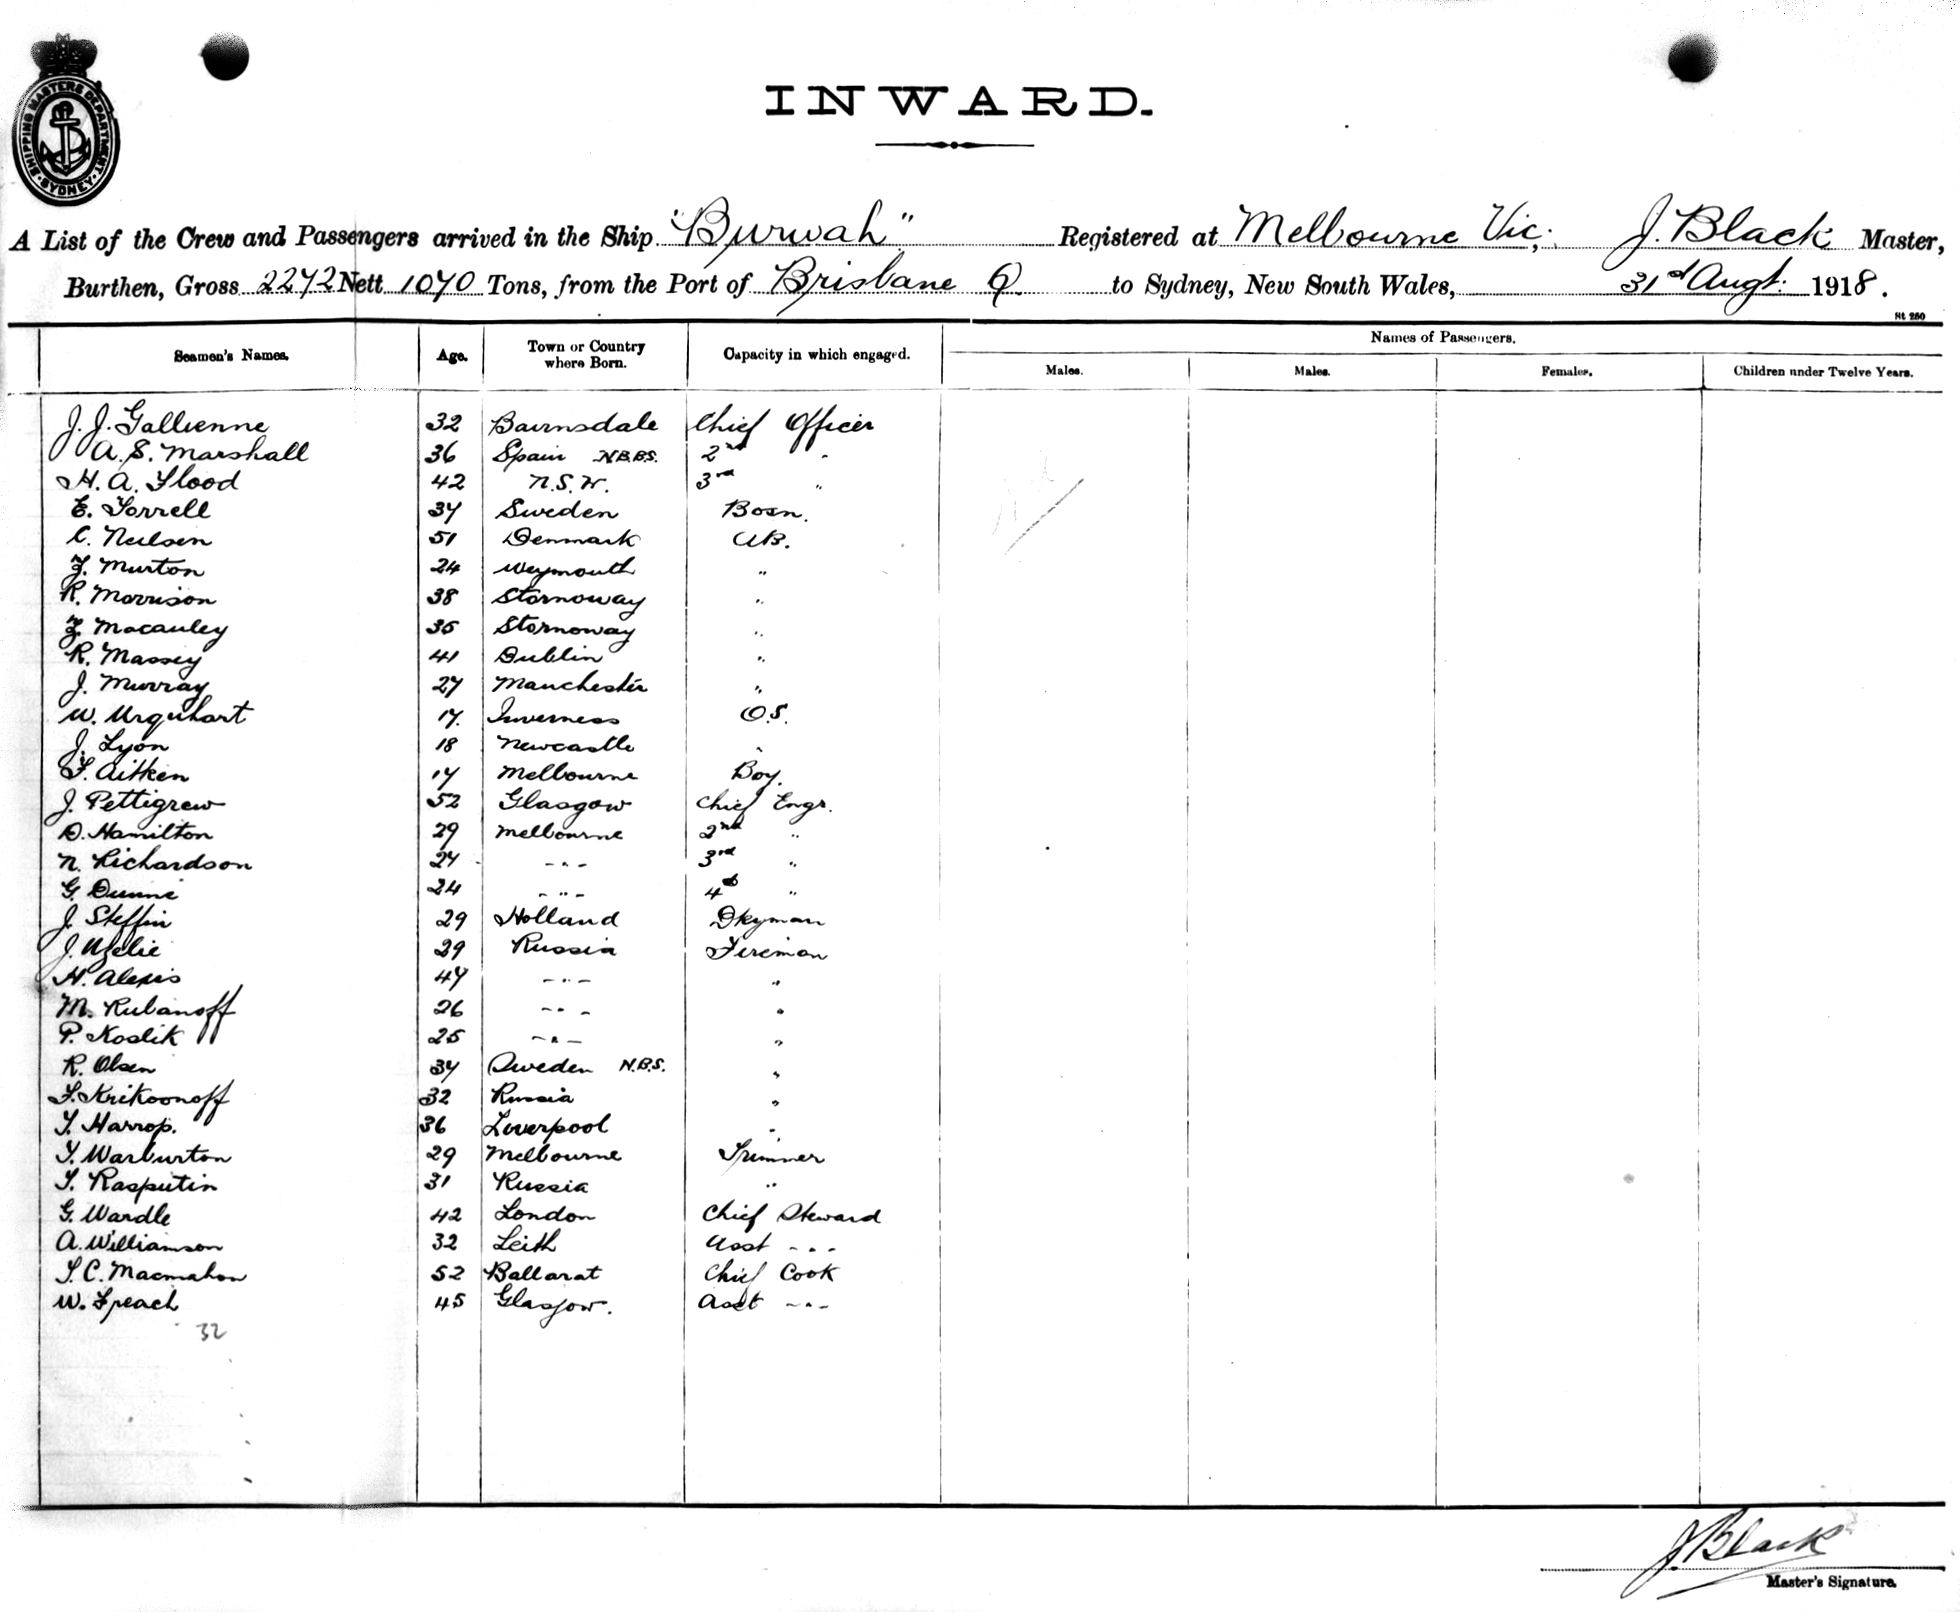 SHIPPING MASTERS DEPARTMENT SYDNEY
INWARD.
A List of the Crew and Passengers arrived in the Ship "Burwah" Registered at Melbourne Vic; J. Black Master,
Burthen, Gross 2272 Nett 1070 Tons, from the Port of Brisbane Q. to Sydney, New South Wales, 31st Augt: 1918.
St 250
Seamen's Names. Age. Town or Country where Born. Capacity in which engaged. Names of Passengers.
Males. Males. Females. Children under Twelve Years.
J. J. Gallienne 32 Bairnsdale Chief Officer
A. S. Marshall 36 Spain N.B.B.S. 2nd "
H. A. Flood 42 N.S.W. 3rd "
E. Torrell 37 Sweden Bosn.
C. Neilsen 51 Denmark AB.
F. Murton 24 Weymouth "
R. Morrison 38 Stornoway "
F. Macauley 35 Stornoway "
R. Massey 41 Dublin "
J. Murray 27 Manchester "
W. Urquhart 17. Inverness O.S.
J. Lyon 18 Newcastle "
F. Aitken 17 Melbourne Boy.
J. Pettigrew 52 Glasgow Chief Engr.
D. Hamilton 29 Melbourne 2nd "
N. Richardson 27 - " - 3rd "
G. Dunne 24 - " - 4th "
J. Steffin 29 Holland Dkyman
J. Uzelie 29 Russia Fireman
H. Alexis 47 - " - "
M. Rubanoff 26 - " - "
P. Koslik 25 - " - "
R. Olsen 37 Sweden N.B.S. "
F. Krikoonoff 32 Russia "
T. Harrop. 36 Liverpool "
T. Warburton 29 Melbourne Trimmer
T. Rasputin 31 Russia "
G. Wardle 42 London Chief Steward
A. Williamson 32 Leith Asst - " -
T. C. Macmahon 52 Ballarat Chief Cook
W. Speach 45 Glasgow. Asst - " -
32
J. Black
Master's Signature.